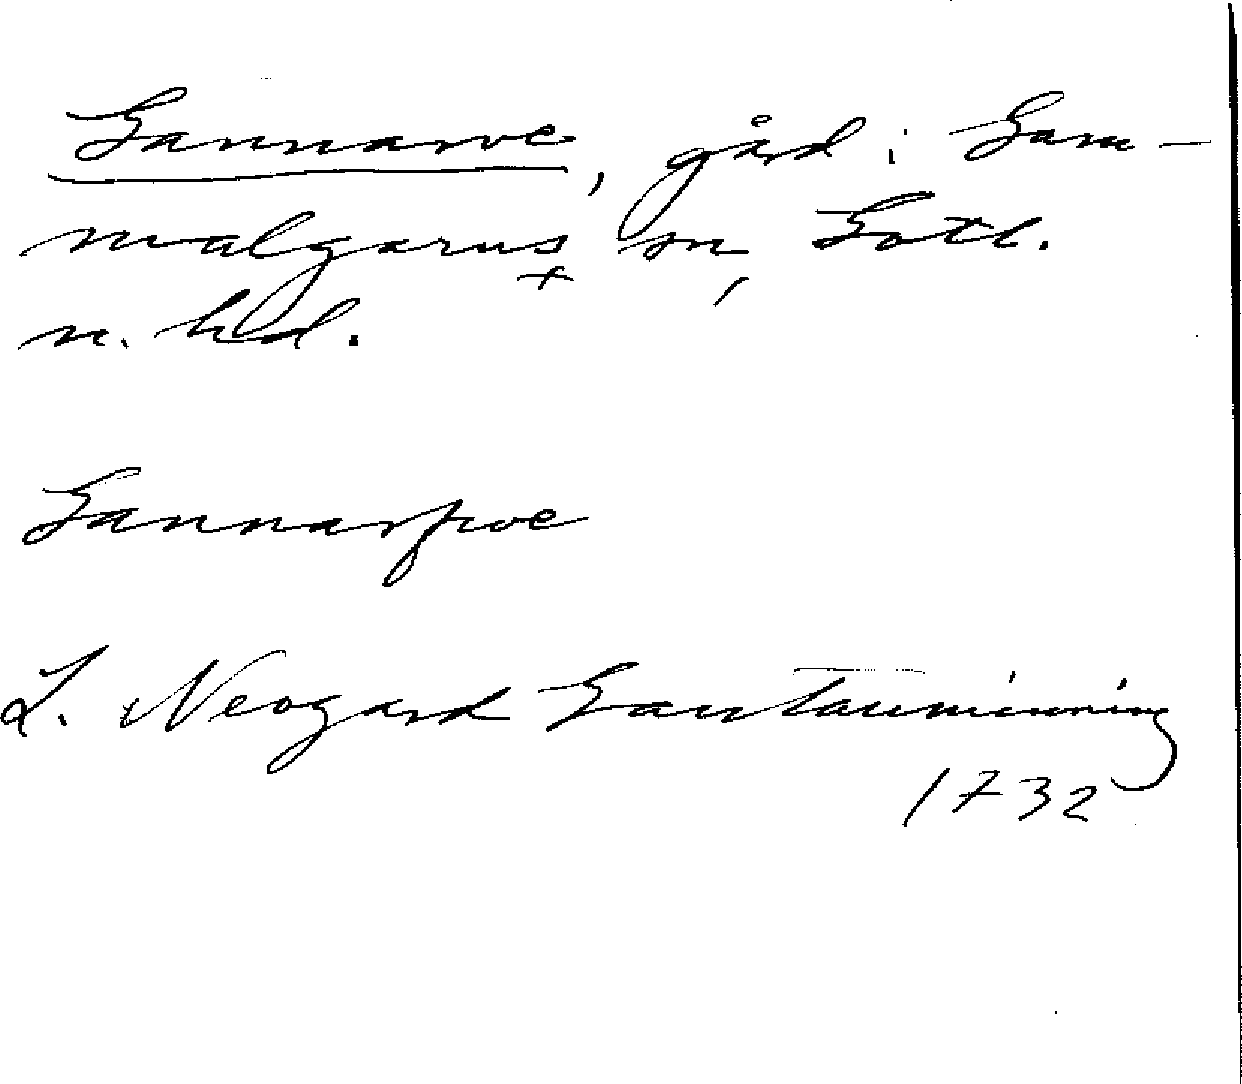 Gannarve, gård i Gam-
malgarns sn, Gotl.
n. hd.
Gannarfwe
L. Neogard Gautauminning
1732